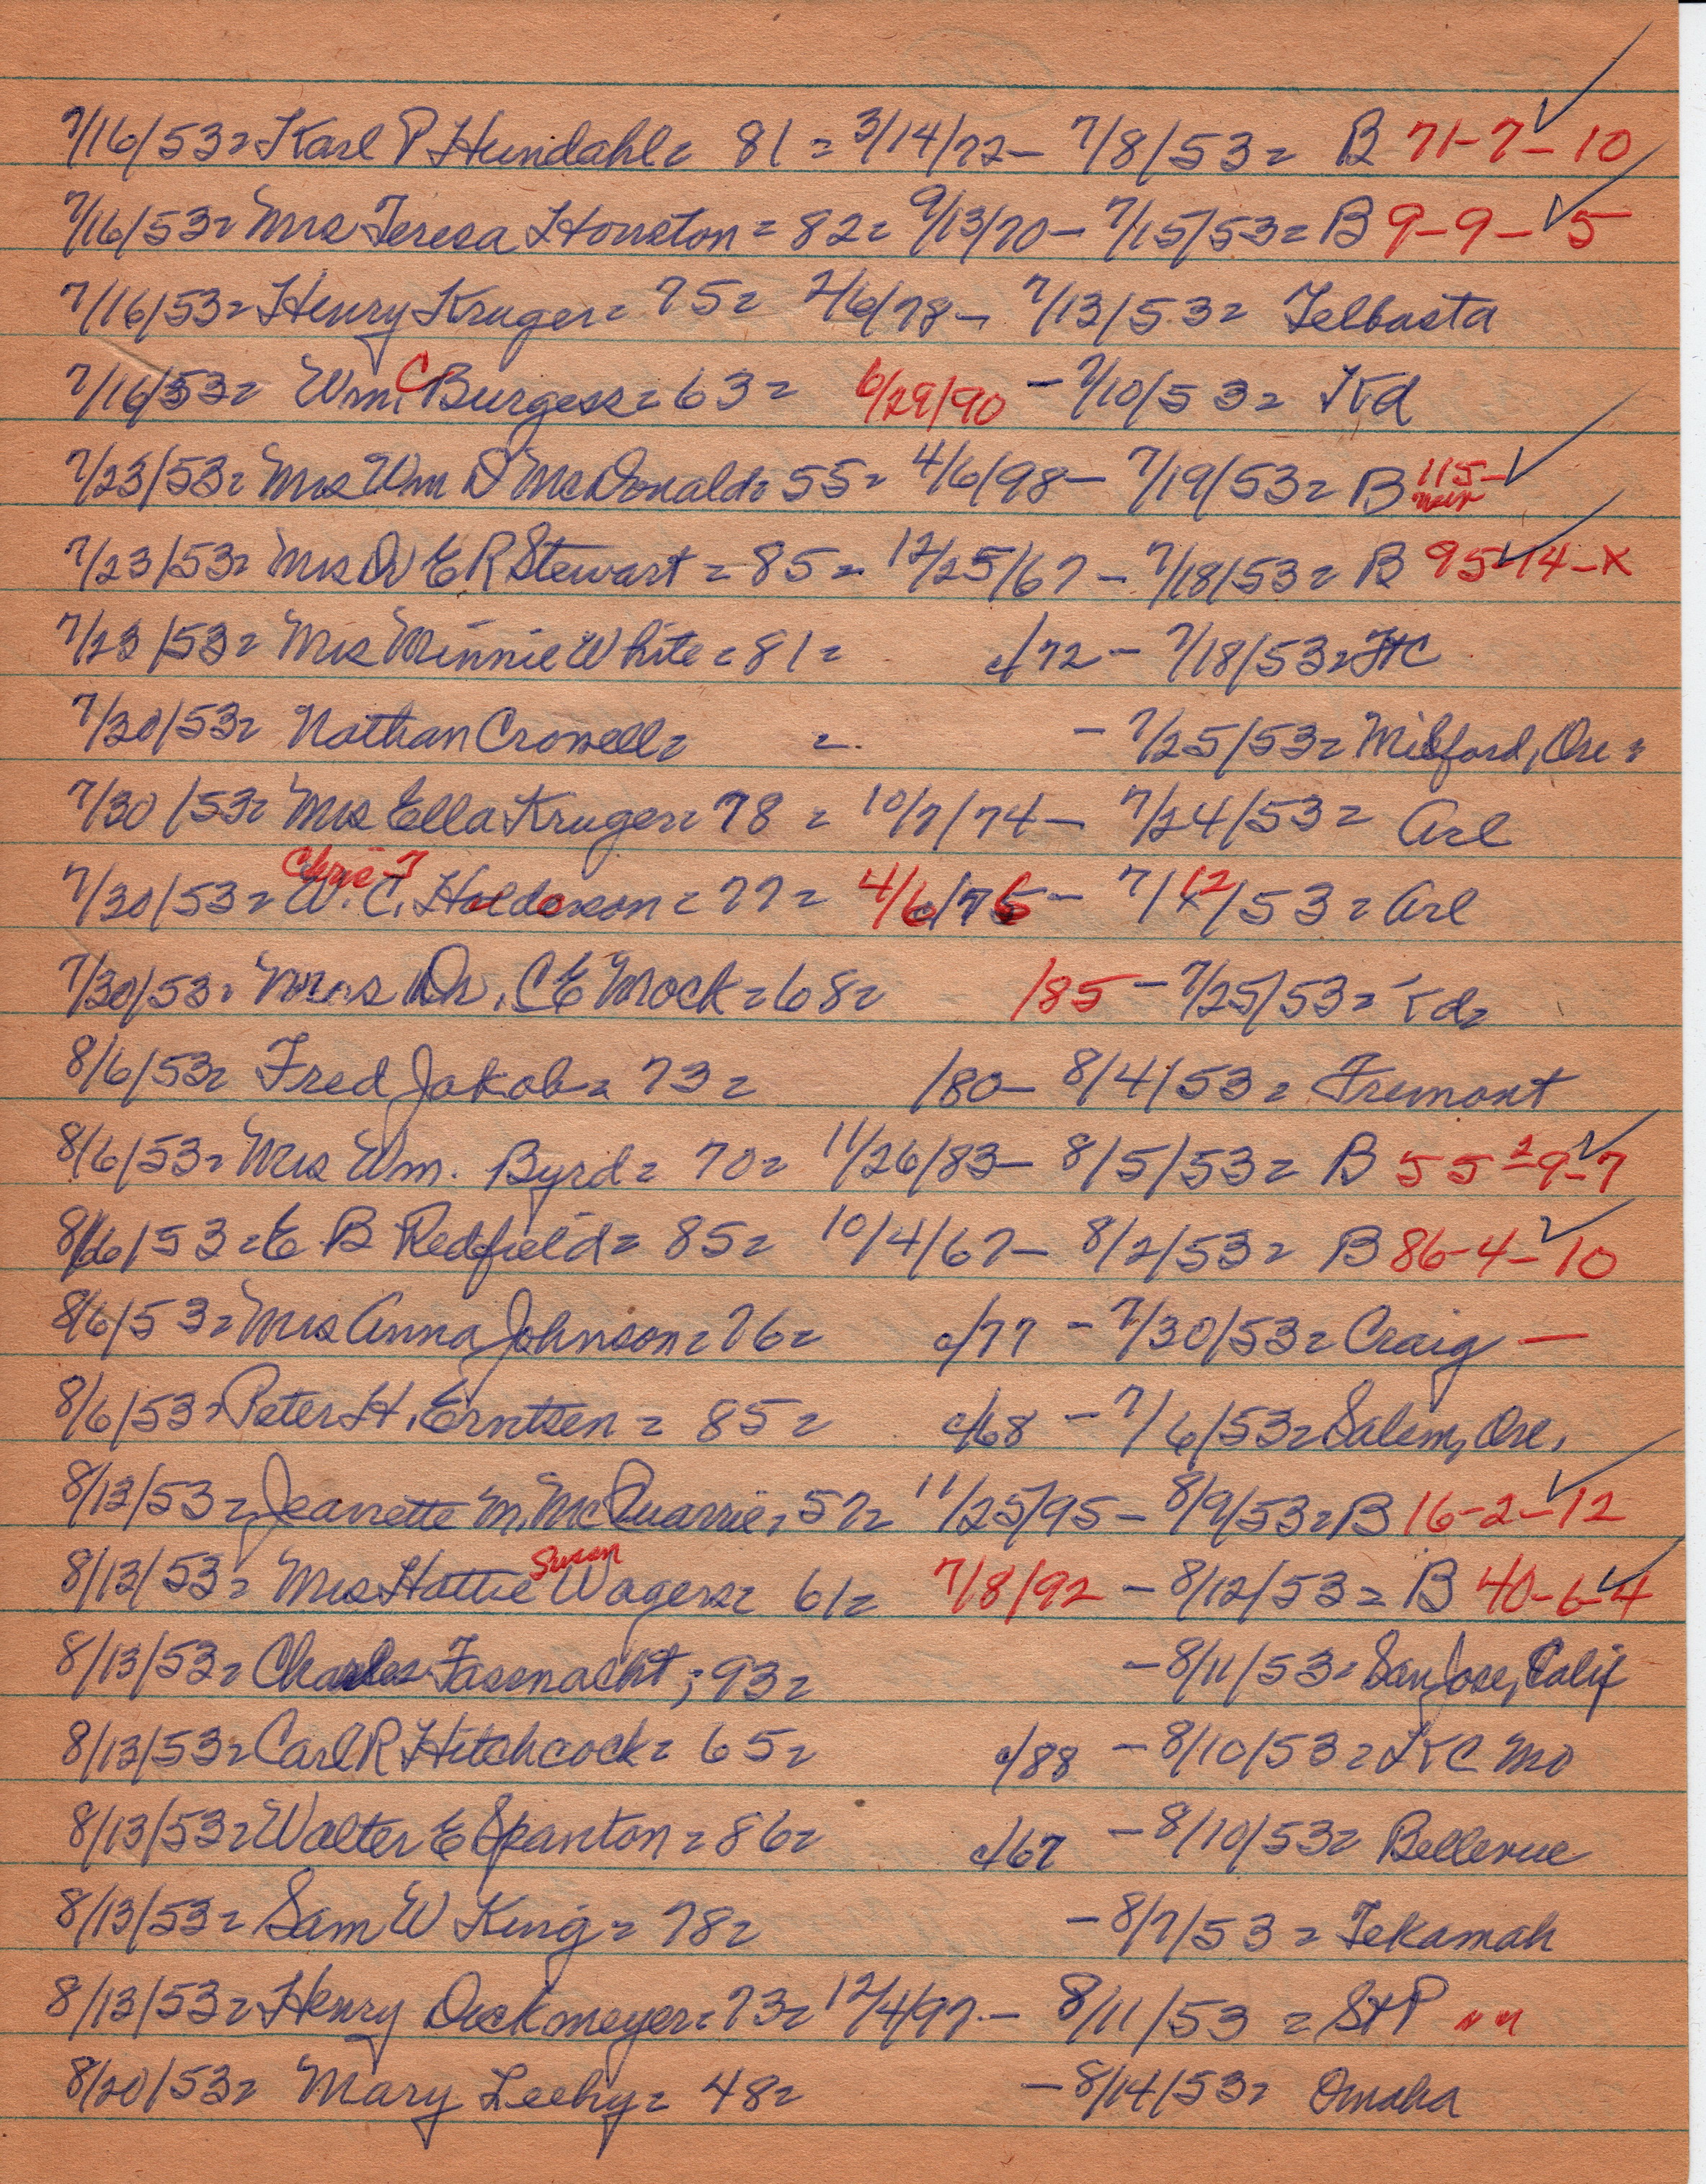 7/16/53= Karl P Hundahl= 81 = 3/14/72- 7/8/53= B 71-7-10
7/16/53= Mrs Teresa Houston = 82= 9/13/70- 7/15/53= B 9-9-5
7/16/53= Henry Kruger= 75= 2/6/78- 7/13/53= Telbasta
7/16/53= Wm. C Burgess= 63= 6/29/90 - 7/10/53= Kd
7/23/53= Mrs Wm D McDonald= 55= 4/6/98- 7/19/53= B 115-
7/23/53= Mrs Dr E R Stewart = 85= 12/25/67- 7/18/53= B 95-14-X
7/23/53= Mrs Minnie White = 81= c/72- 7/18/53= FtC
7/30/53= Nathan Crowell= =. - 7/25/53= Milford, Ore =
7/30/53= Mrs Ella Kruger= 78 = 10/7/74- 7/24/53= Arl
7/30/53= Chris T W. C. Holdorson = 77= 4/6/76- 7/12/53= Arl
7/30/53= Mrs Dr. C E Mock = 68= /85- 7/25/53= Kd=
8/6/53= Fred Jakob= 73= /80- 8/4/53= Fremont
8/6/53= Mrs Wm. Byrd= 70= 11/26/83- 8/5/53= B 55 2-9-7
8/6/53= E B Redfield= 85= 10/4/67- 8/2/53= B 86-4-10
8/6/53= Mrs Anna Johnson= 76= c/77 - 7/30/53= Craig -
8/6/53= Peter H. Erntsen = 85= c/68 - 7/6/53= Salem, Ore.
8/13/53= Jeanette M. McQuarrie, 57= 11/25/95- 8/9/53= B 16-2-12
8/13/53= Mrs Hattie Susan Wagers= 61= 7/8/92 - 8/12/53= B 40-6-4
8/13/53= Charles Fassnacht; 93= - 8/11/53= San Jose, Calif
8/13/53= Carl R Hitchcock= 65= c/88 - 8/10/53= KC Mo
8/13/53= Walter E Spanton = 86= c/67 - 8/10/53= Bellevue
8/13/53= Sam W King = 78= - 8/7/53 = Tekamah
8/13/53= Henry Dickmeyer= 73= 12/4/97.- 8/11/53 = StP
8/20/53= Mary Leehy= 48= - 8/14/53= Omaha